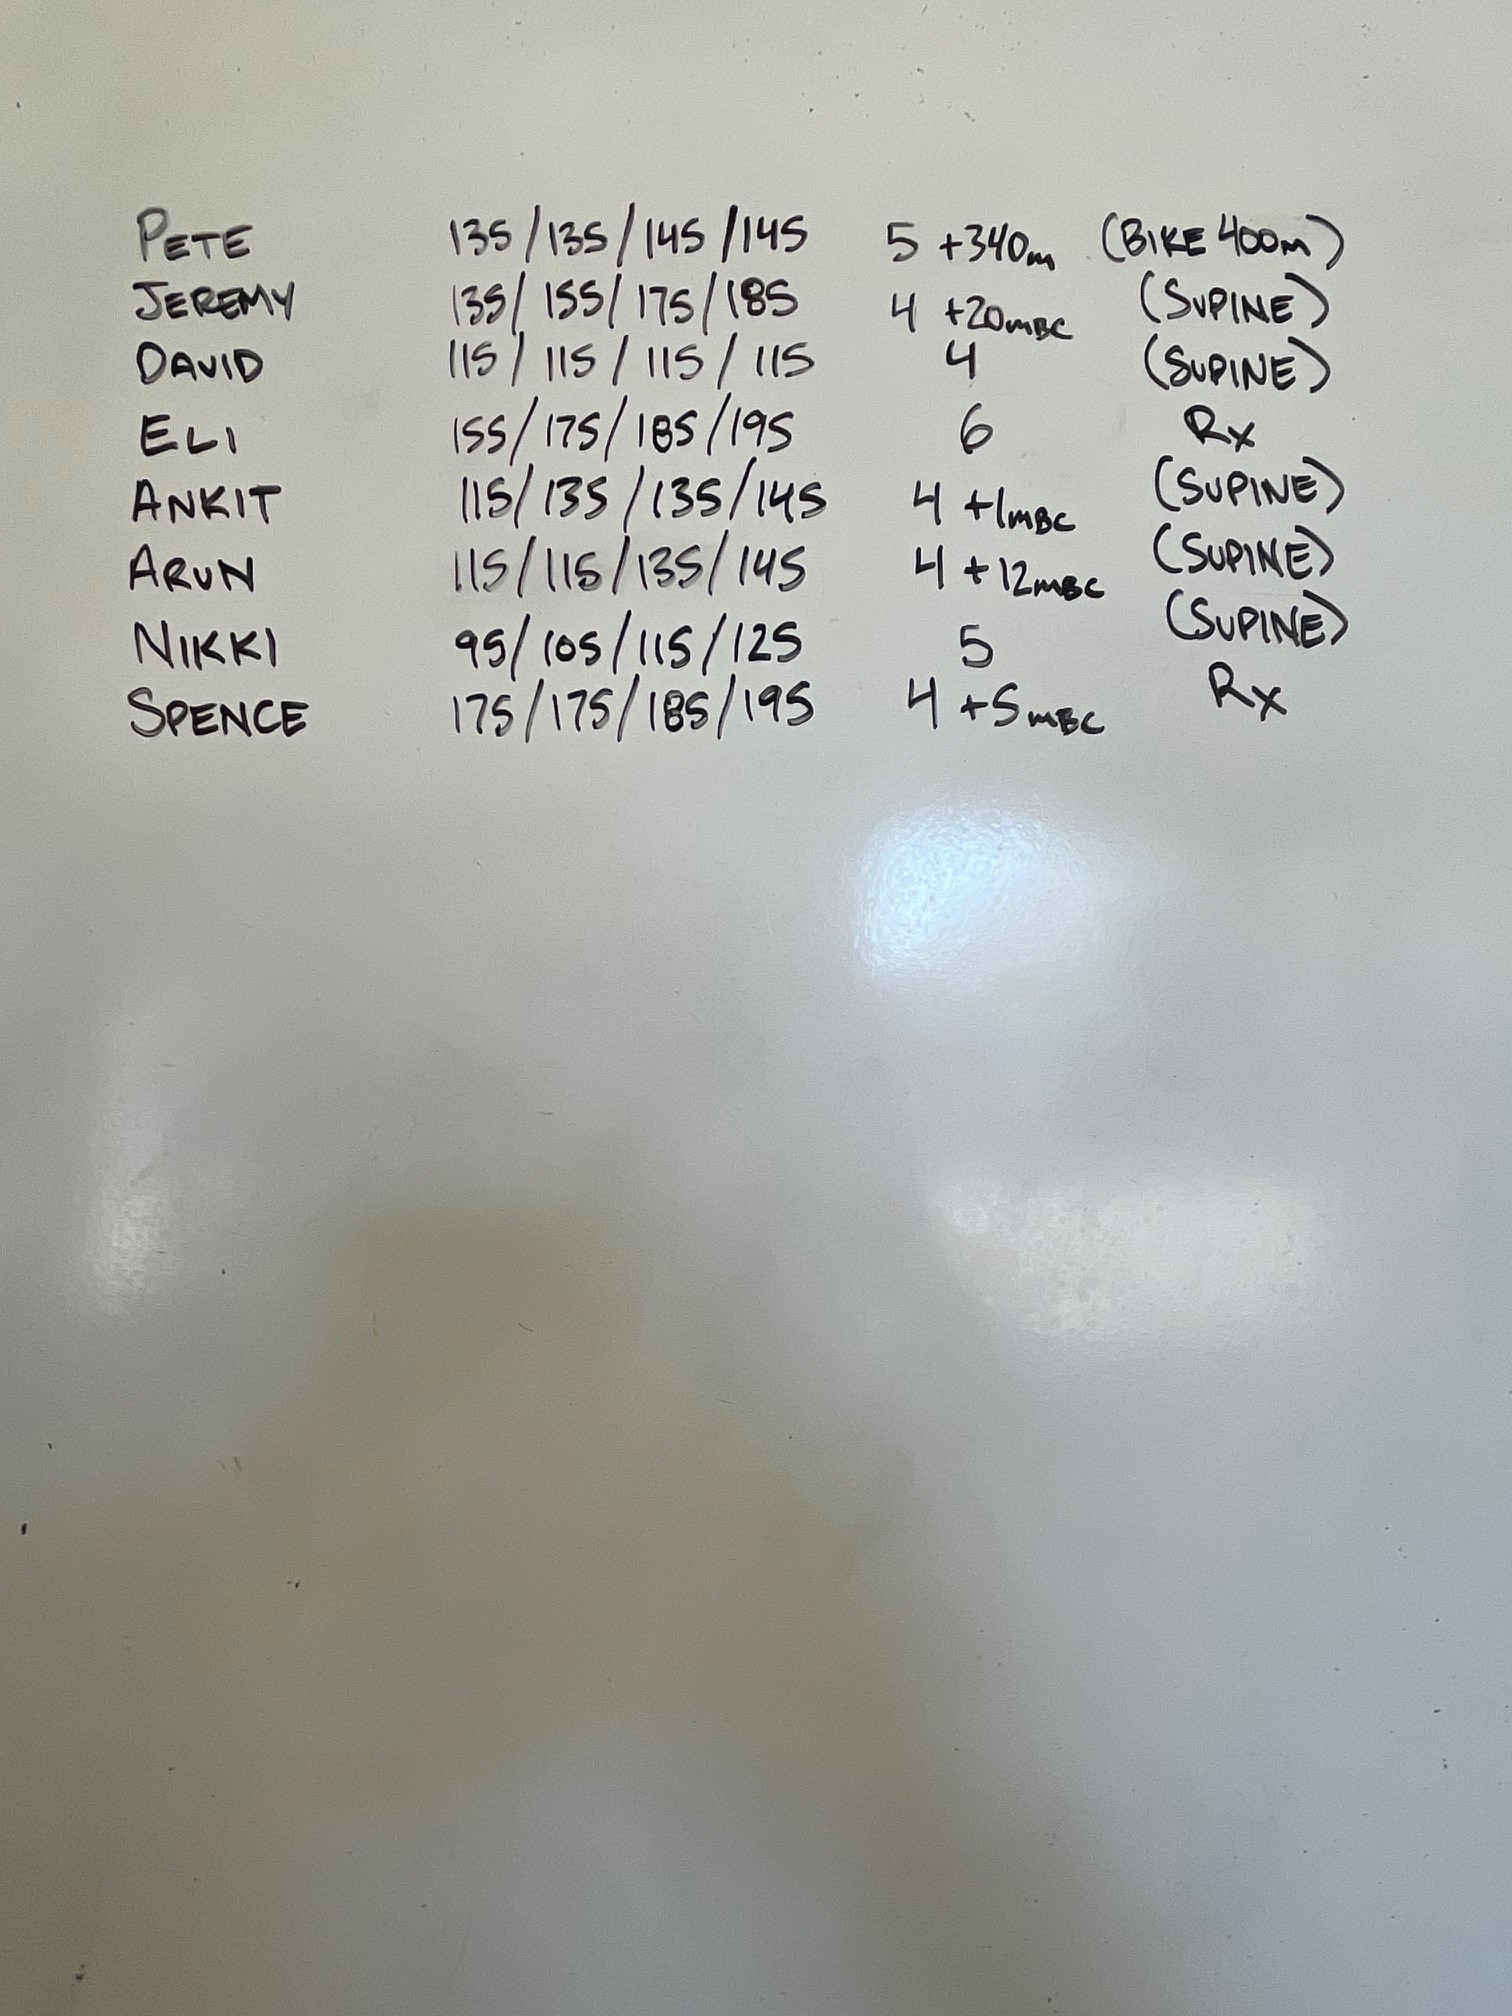 PETE 135/135/145/145 5 +340m (BIKE 400m)
JEREMY 135/155/175/185 4 +20MBC (SUPINE)
DAVID 115/115/115/115 4 (SUPINE)
ELI 155/175/185/195 6 Rx
ANKIT 115/135/135/145 4 +1MBC (SUPINE)
ARUN 115/115/135/145 4 +12MBC (SUPINE)
NIKKI 95/105/115/125 5 (SUPINE)
SPENCE 175/175/185/195 4 +5MBC Rx